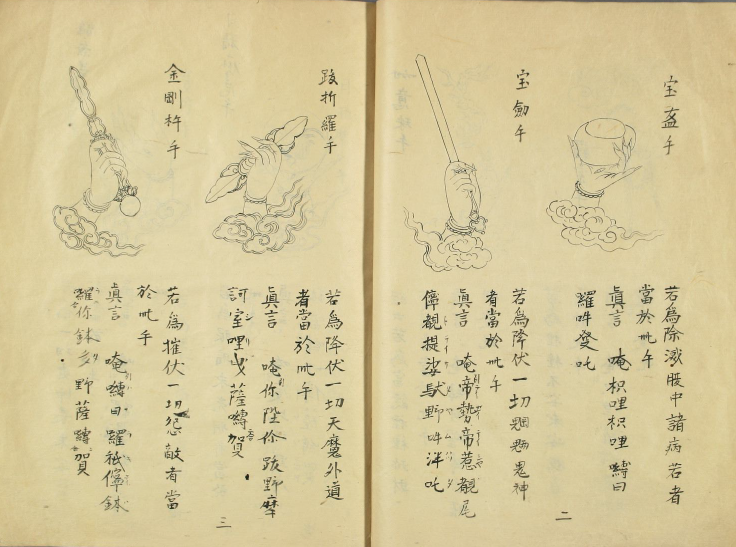 宝盋手
若為除滅腹中諸病苦者
當於此手
真言　唵枳哩枳哩嚩曰
羅吽發吒
宝劒手
若為降伏一切魍魎鬼神
者當於此手
真言　唵帝勢帝惹覩尾
儜覩提娑馱野吽泮吒
二
跋折羅手
若為降伏一切天魔外道
者當於此手
真言　唵你陛你跋野摩
訶室哩曳薩嚩賀
金剛杵手
若為摧伏一切怨敵者當
於此手
真言　唵嚩曰羅祇儜鉢
羅你鉢多野薩嚩賀
三